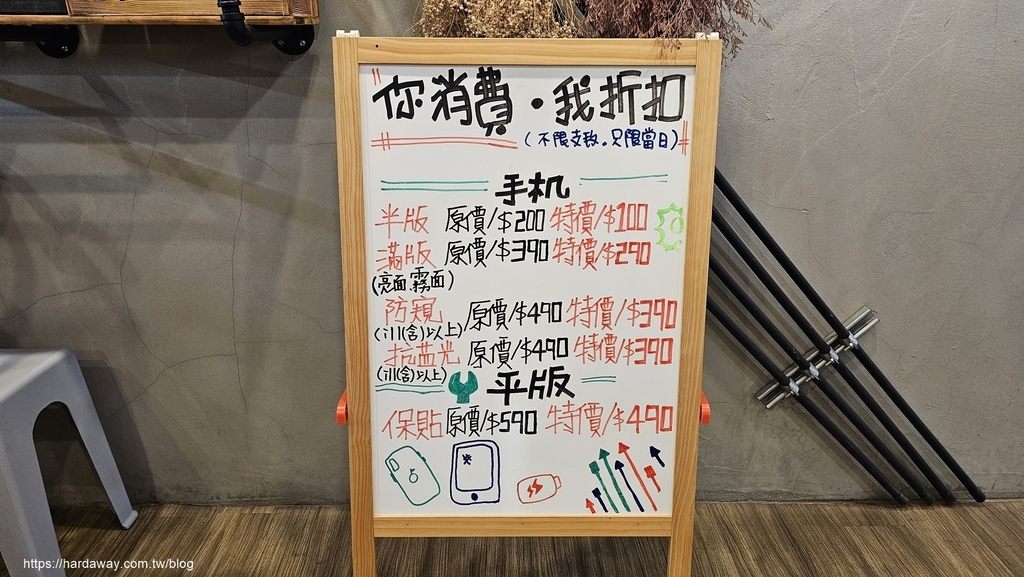 你消費·我折扣
(不限支數。只限當日)
手机
半版 原價/$200 特價/$100
滿版 原價/$390 特價/$290
(亮面.霧面)
防窺 原價/$490 特價/$390
(i11(含)以上)
抗藍光 原價/$490 特價/$390
(i11(含)以上)
平版
保貼 原價/$590 特價/$490
https://hardaway.com.tw/blog